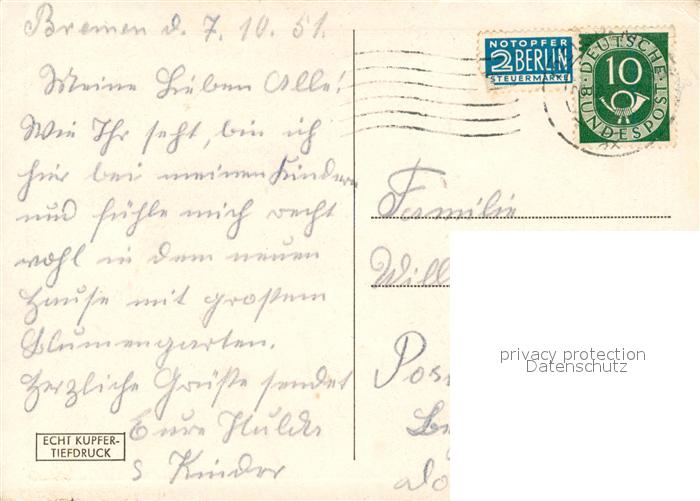 Bremen d. 7. 10. 51.
Meine Lieben Alle!
Wie Ihr seht, bin ich
hier bei meinen Kindern
und fühle mich recht
wohl in dem neuen
Hause mit großem
Blumengarten.
Herzliche Grüße sendet
Eure Hulda
& Kinder
ECHT KUPFER-
TIEFDRUCK
NOTOPFER
2 BERLIN
STEUERMARKE
DEUTSCHE
BUNDESPOST
10
Familie
Will
Pos
privacy protection
Datenschutz